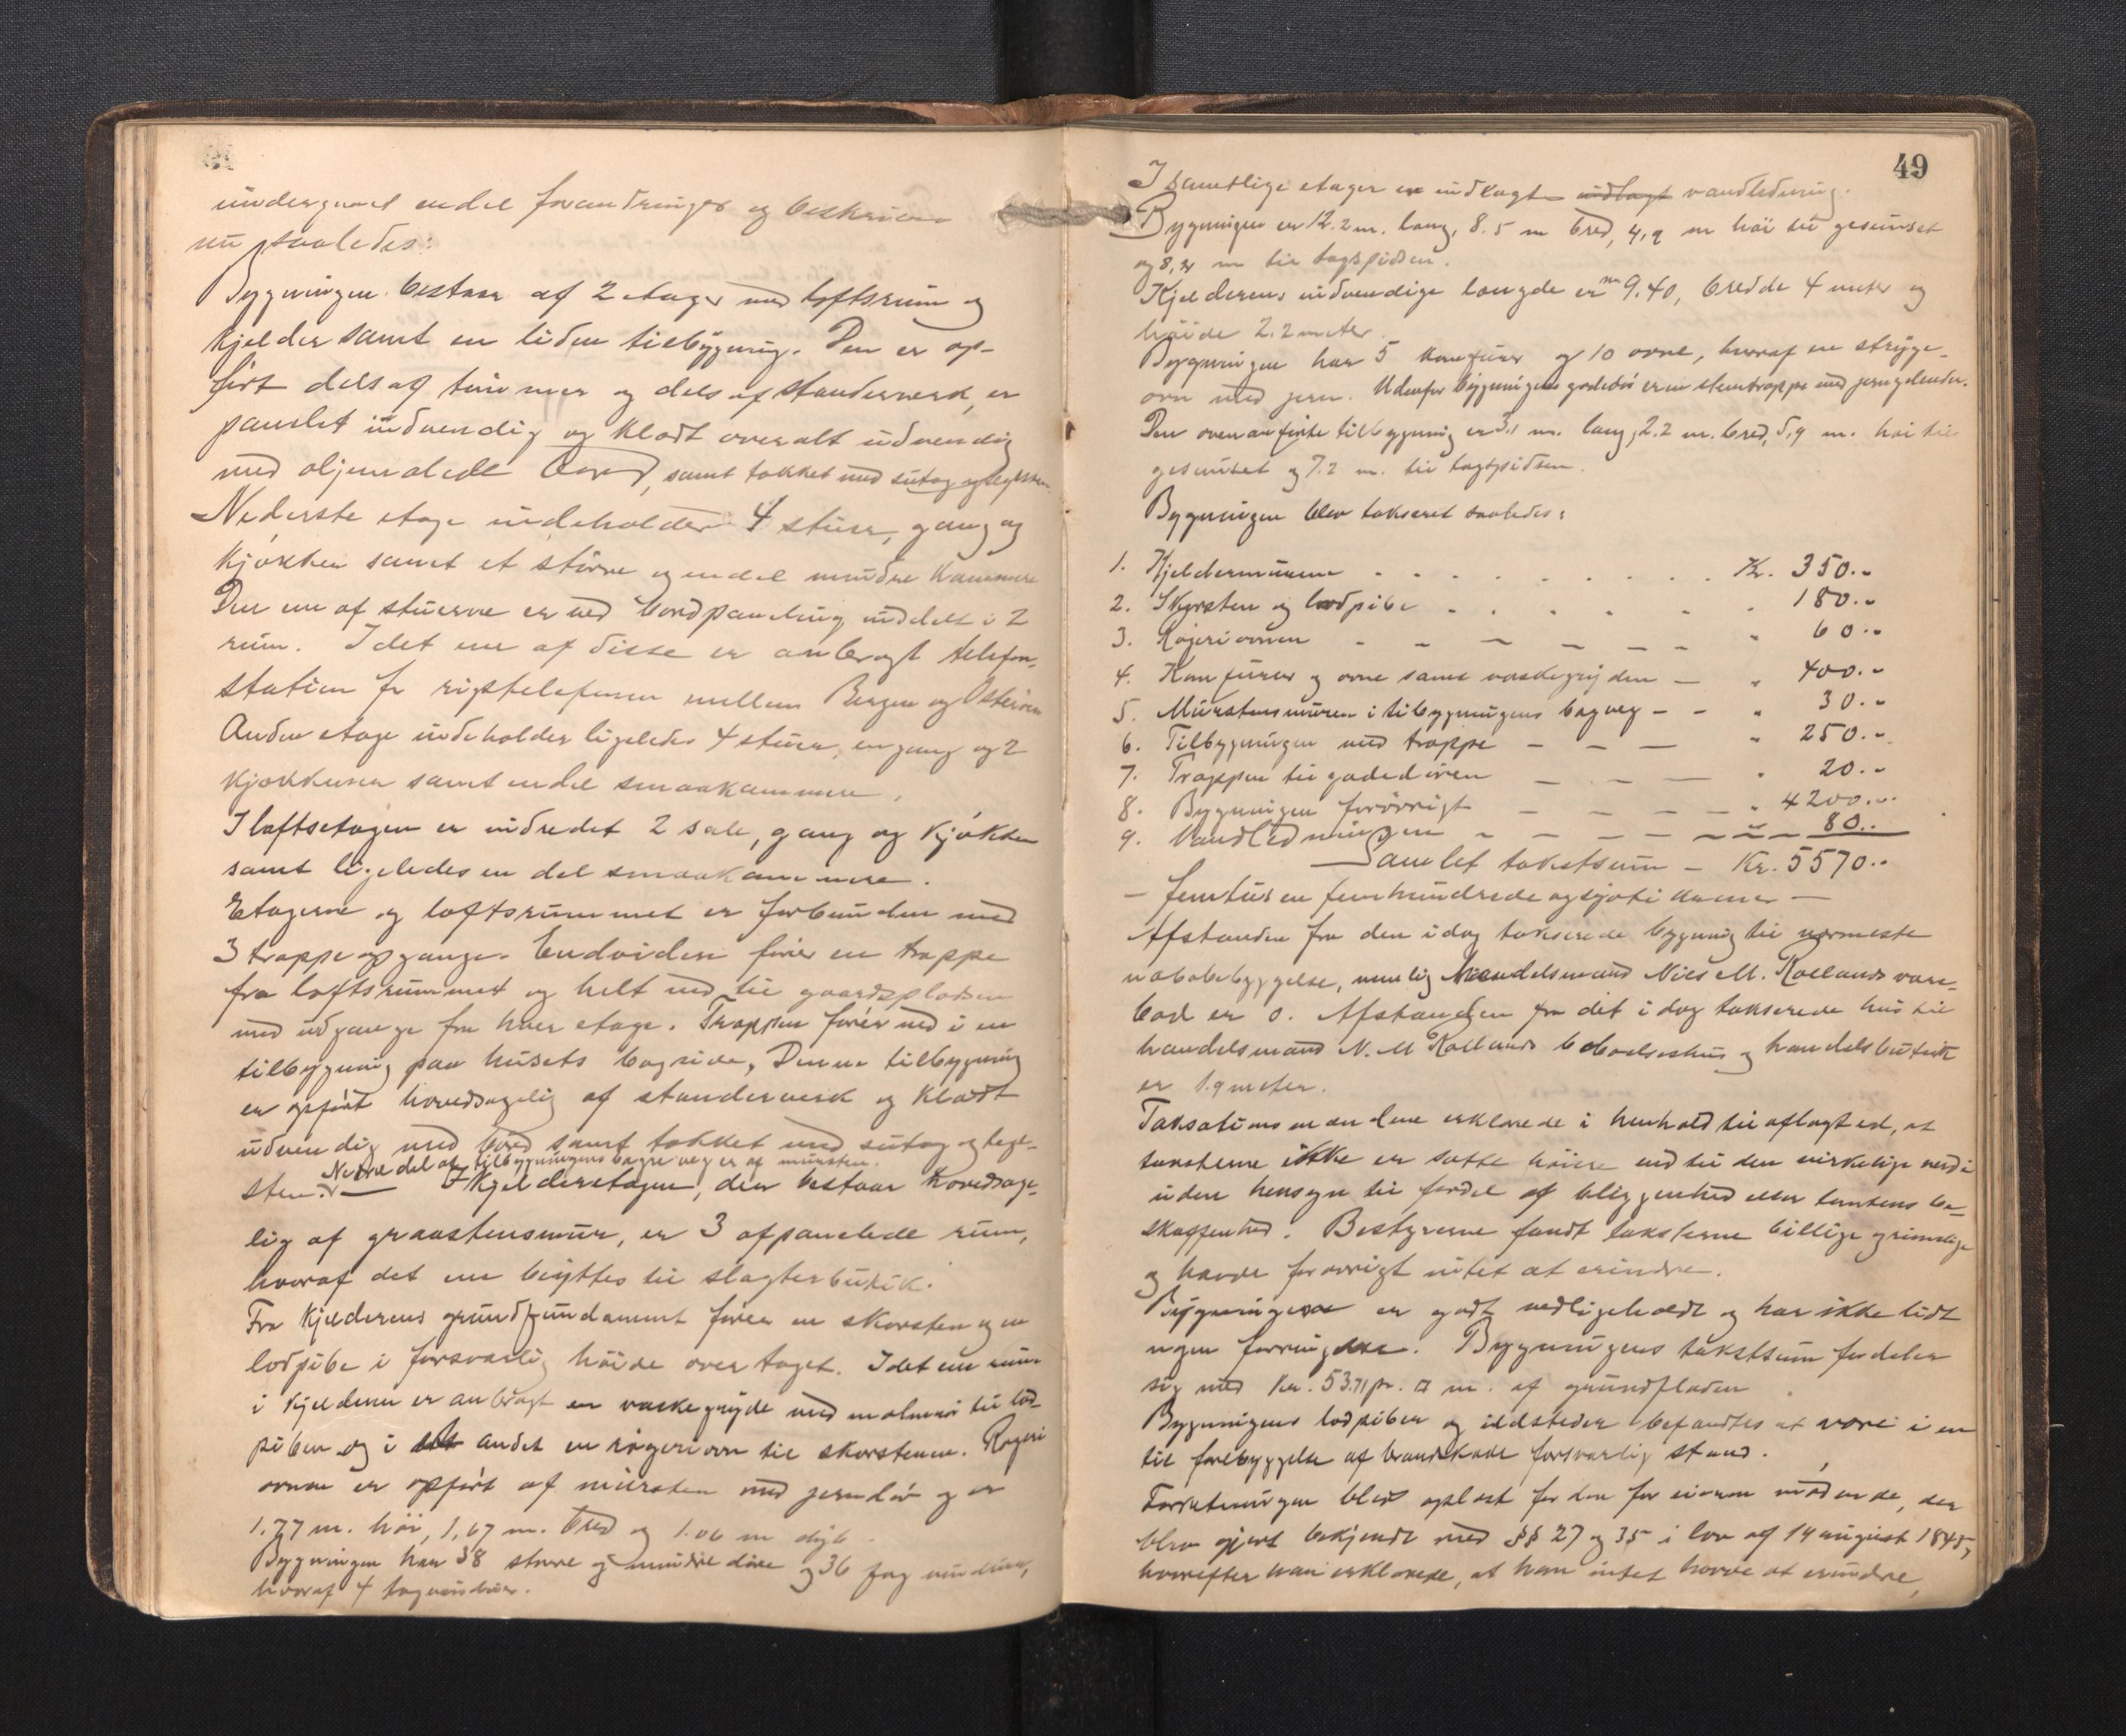 undergaaet endel forandringer og beskrives
nu saaledes:
Bygningen bestaar af 2 etager med loftsrum og
kjelder samt en liden tilbygning. Den er op-
ført dels af tømmer og dels af standerverk, er
panelet indvendig og klædt overalt udvendig
med oljemalede bord, samt tækket med sutag og teglsten
Nederste etage indeholder 4 stuer, gang og
kjøkken samt et større og endel mindre kammere
Den ene af stuerne er ved bordpaneling inddelt i 2
rum. I det ene af disse er anbragt telefon-
station for rigstelefonen mellem Bergen og Osterøen
Anden etage indeholder ligeledes 4 stuer, en gang og 2
kjøkkener samt endel smaakammere.
I loftsetagen er indredet 2 sale, gang og kjøkken
samt ligeledes en del smaakammere.
Etagerne og loftsrummet er forbunden med
3 trappeopgange. Endvidere fører en trappe
fra loftsrummet og helt ned til gaardspladsen
med udgange fra hver etage. Trappen fører ned i en
tilbygning paa husets bagside, Denne tilbygning
er opført hovedsagelig af standerverk og klædt
udvendig med bord samt tækket med sutag og tegl-
Nedre del af tilbygningens bagre veg er af mursten.
sten. — I kjelderetagen, der bestaar hovedsage-
lig af graastensmur, er 3 afpanelede rum,
hvoraf det ene benyttes til slagterbutik.
Fra kjelderens grundfundament fører en skorsten og en
lodpibe i forsvarlig høide over taget. I det ene rum
i kjelderen er anbragt en vaskegryde med malmrør til lod-
piben og i det andet en røgeriovn til skorstenen. Røgeri
ovnen er opført af mursten med jerndør og er
1.77 m. høi, 1,67 m. bred og 1.06 m dyb.
Bygningen har 38 større og mindre døre og 36 fag vinduer,
hvoraf 4 tagvinduer.
49
I samtlige etager er indlagt indlagt vandledning.
Bygningen er 12.2 m. lang, 8.5 m bred, 4,9 m høi til gesimset
og 8,4 m til tagspidsen.
Kjelderens indvendige længde er m 9.40, bredde 4 meter og
høide 2.2 meter.
Bygningen har 5 komfurer og 10 ovne, hvoraf en stryge-
ovn med jern. Udenfor bygningens gadedør er en stentrappe med jerngelender.
Den ovenanførte tilbygning er 3.1 m. lang, 2.2 m. bred, 5,9 m. høi til
gesimset og 7.2 m. til tagspidsen.
Bygningen blev takseret saaledes:
1. Kjeldermurene . . . . . . Kr. 350.-
2. Skorsten og lodpibe . . . . . " 180.-
3. Røgeriovnen - - - - - " 60.-
4. Komfurer og ovne samt vaskegryden - " 400.-
5. Murstensmuren i tilbygningens bagveg - - " 30.-
6. Tilbygningen med trappe - - - " 250.-
7. Trappen til gadedøren - - - " 20.-
8. Bygningen forøvrigt - - - - " 4200.-
9. Vandledningen - - - - - - 80.-
Samlet takstsum - Kr. 5570.-
- femtusen femhundrede og sytti kroner -
Afstanden fra den idag takserede bygning til nærmeste
nabobebyggelse, nemlig handelsmand Nils M. Rollands vare-
bod er 0. Afstanden fra det i dag takserede hus til
handelsmand N. M Rollands beboelseshus og handelsbutik
er 1.9 meter.
Taksationsmændene erklærede i henhold til aflagt ed, at
taksterne ikke er satte høiere end til den virkelige verdi
uden hensyn til fordel af beliggenhed eller tomtens be-
skaffenhed. Bestyrerne fandt taksterne billige og rimelige
og havde forøvrigt intet at erindre.
Bygningen er godt vedligeholdt og har ikke lidt
nogen forringelse. Bygningens takstsum fordeler
sig med Kr. 53.71 pr. □ m. af grundfladen.
Bygningens lodpiber og ildsteder befandtes at være i en
til forebyggelse af brandskade forsvarlig stand.
Forretningen blev oplæst for den for eieren mødende, der
blev gjort bekjendt med §§ 27 og 35 i lov af 19 august 1845,
hvorefter han erklærede, at han intet havde at erindre,